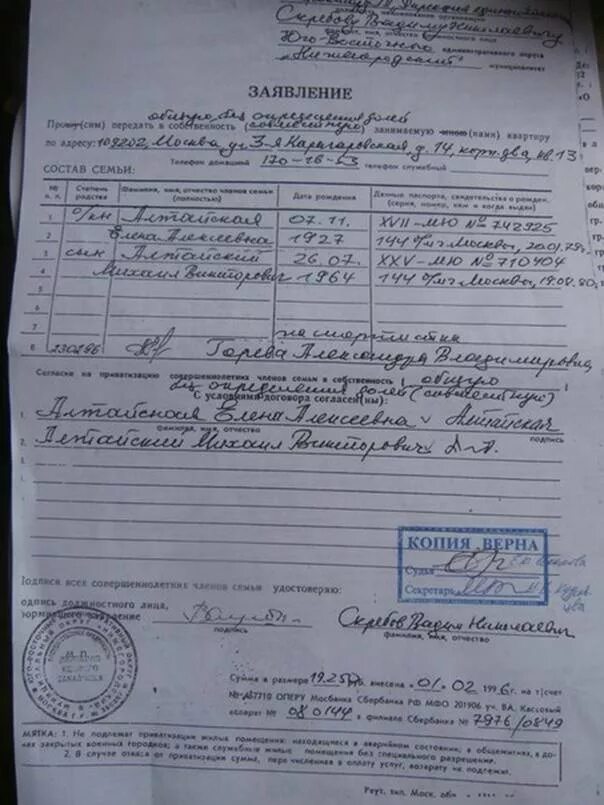 Скребову Вадиму Николаевичу
фамилия, имя, отчество должностного лица
Юго-Восточный административного округа
"Нижегородский" муниципалитет
ЗАЯВЛЕНИЕ
общую, без определения долей
Прошу(сим) передать в собственность (совместную) занимаемую мною (нами) квартиру
по адресу: 109202, Москва, ул. 3-я Карачаровская, д. 14, корп. два, кв. 13
Телефон домашний 170-16-53 телефон служебный
СОСТАВ СЕМЬИ:
№ п. п. Степень родства Фамилия, имя, отчество членов семьи (полностью) Дата рождения Данные паспорта, свидетельства о рожден. (серия, номер, кем и когда выдан)
1 о/кн Алтайская 07.11. XVII-МЮ № 742925
2 Елена Алексеевна 1927 144 о/м г Москвы, 20.01.78г.
3 сын Алтайский 26.07. XXV-МЮ № 710404
4 Михаил Викторович 1964 144 о/м г Москвы, 19.08.80,
5
6
7
8 230296 Горева Александра Владимировна
Согласие на приватизацию совершеннолетних членов семьи в собственность ( общую
без определения долей (совместную)
С условиями договора согласен(ны):
1. Алтайская Елена Алексеевна Алтайская
фамилия, имя, отчество подпись
2. Алтайский Михаил Викторович
3
КОПИЯ ВЕРНА
Судья
Секретарь
Подписи всех совершеннолетних членов семьи удостоверяю:
подпись должностного лица,
Скребов Вадим Николаевич
подпись фамилия, имя, отчество
Сумма в размере внесена 01. 02 1996г. на т/счет
№ 467710 ОПЕРУ Мосбанка Сбербанка РФ МФО 201906 уч. ВА. Кассовый
аппарат № 080144 в филиале Сбербанка № 7976/0849
МЯТКА: 1. Не подлежат приватизации жилые помещения: находящиеся в аварийном состоянии, в общежитиях, в до-
мах закрытых военных городков; а также служебные жилые помещения без специального разрешения.
2. В случае отказа от приватизации сумма, перечисленная в оплату услуг, возврату не подлежит.
Реут. тип. Моск. обл.